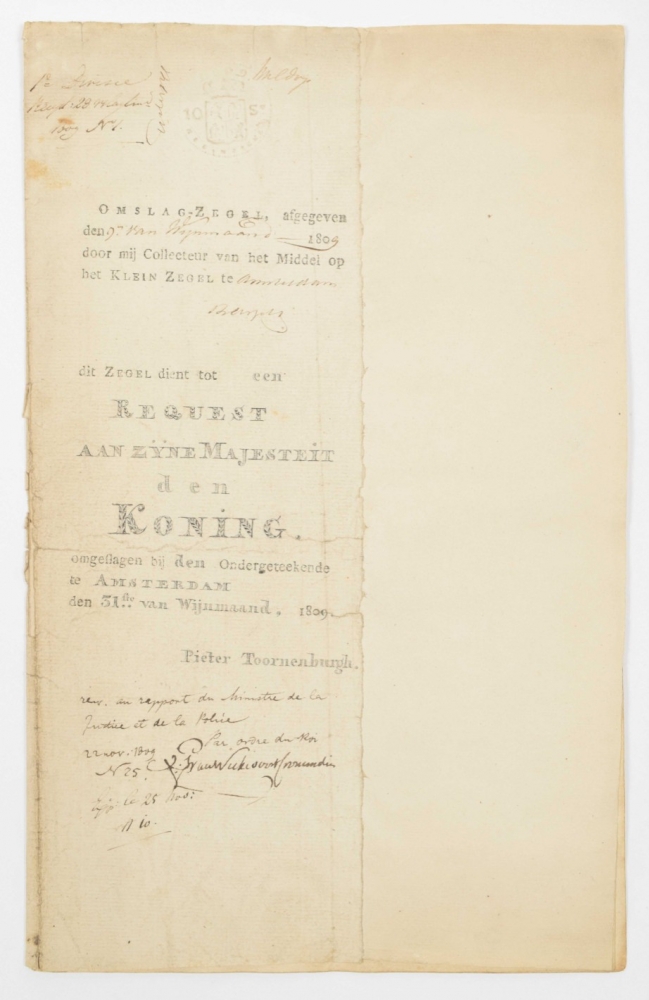 1809 N 1.
10 S
OMSLAG-ZEGEL, afgegeven
den 9n van Wijnmaand 1809
door mij Collecteur van het Middel op
het KLEIN ZEGEL te Amsterdam
dit ZEGEL dient tot een
REQUEST
AAN ZŸNE MAJESTEIT
den
KONING.
omgeslagen bij den Ondergeteekende
te AMSTERDAM
den 31ste van Wijnmaand. 1809.
Pieter Toornenburgh.
renv. au rapport du Ministre de la
Justice et de la Police
22 nov. 1809 Par ordre du Roi
N 25.
le 25 Nov:
N 10.